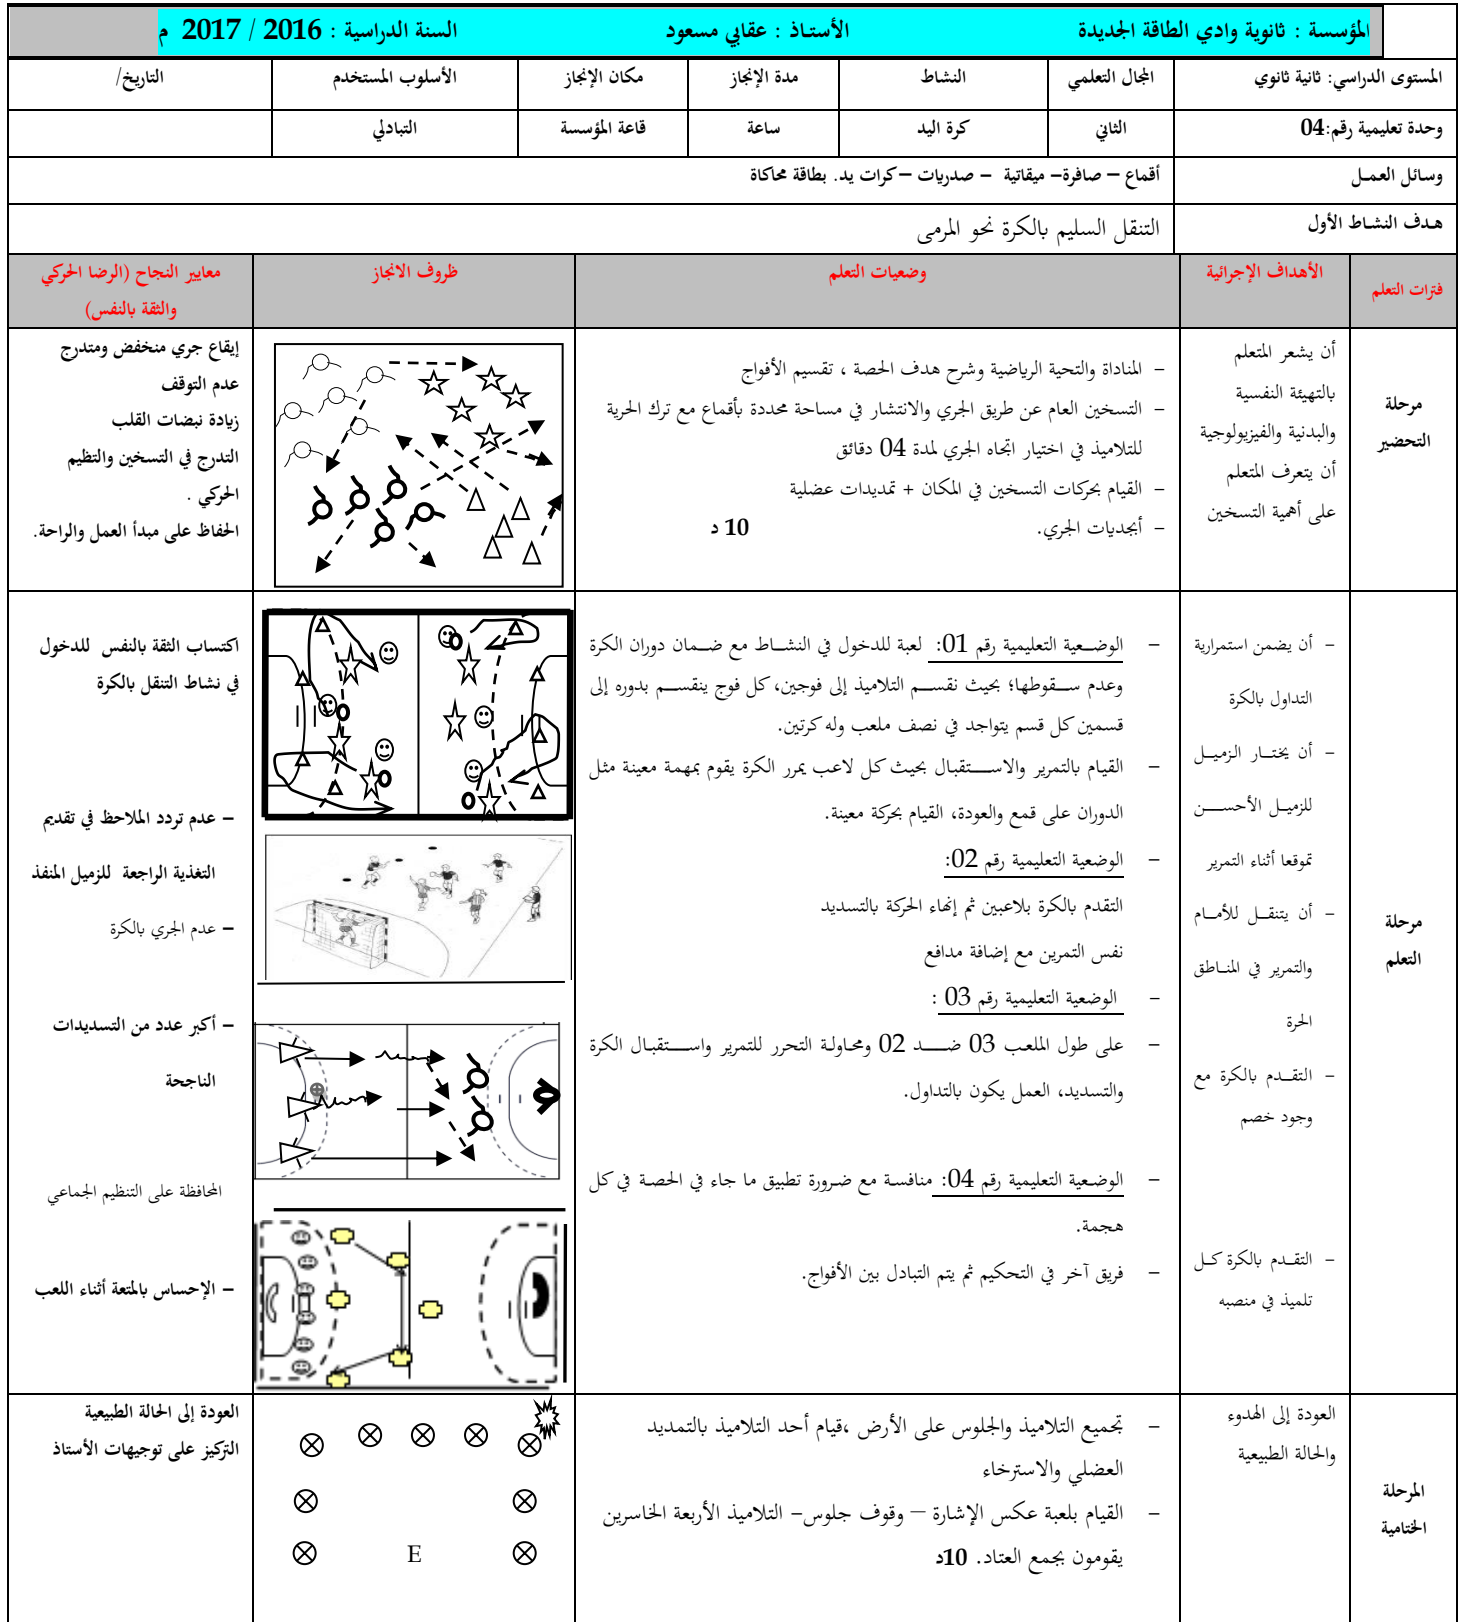 المؤسسة : ثانوية وادي الطاقة الجديدة الأستاذ : عقابي مسعود السنة الدراسية : 2016 / 2017 م
المستوى الدراسي: ثانية ثانوي المجال التعلمي النشاط مدة الإنجاز مكان الإنجاز الأسلوب المستخدم التاريخ/
وحدة تعليمية رقم:04 الثاني كرة اليد ساعة قاعة المؤسسة التبادلي
وسائل العمل أقماع – صافرة– ميقاتية – صدريات –كرات يد. بطاقة محاكاة
هدف النشاط الأول التنقل السليم بالكرة نحو المرمى
فترات التعلم الأهداف الإجرائية وضعيات التعلم ظروف الانجاز معايير النجاح (الرضا الحركي
والثقة بالنفس)
مرحلة
التحضير
أن يشعر المتعلم
بالتهيئة النفسية
والبدنية والفيزيولوجية
أن يتعرف المتعلم
على أهمية التسخين
- المناداة والتحية الرياضية وشرح هدف الحصة ، تقسيم الأفواج
- التسخين العام عن طريق الجري والانتشار في مساحة محددة بأقماع مع ترك الحرية
للتلاميذ في اختيار اتجاه الجري لمدة 04 دقائق
- القيام بحركات التسخين في المكان + تمديدات عضلية
- أبجديات الجري. 10 د
إيقاع جري منخفض ومتدرج
عدم التوقف
زيادة نبضات القلب
التدرج في التسخين والتظيم
الحركي .
الحفاظ على مبدأ العمل والراحة.
مرحلة
التعلم
- أن يضمن استمرارية
التداول بالكرة
- أن يختار الزميل
للزميل الأحسن
تموقعا أثناء التمرير
- أن يتنقل للأمام
والتمرير في المناطق
الحرة
- التقدم بالكرة مع
وجود خصم
- التقدم بالكرة كل
تلميذ في منصبه
- الوضعية التعليمية رقم 01: لعبة للدخول في النشاط مع ضمان دوران الكرة
وعدم سقوطها؛ بحيث نقسم التلاميذ إلى فوجين،كل فوج ينقسم بدوره إلى
قسمين كل قسم يتواجد في نصف ملعب وله كرتين.
- القيام بالتمرير والاستقبال بحيث كل لاعب يمرر الكرة يقوم بمهمة معينة مثل
الدوران على قمع والعودة، القيام بحركة معينة.
- الوضعية التعليمية رقم 02:
التقدم بالكرة بلاعبين ثم إنهاء الحركة بالتسديد
نفس التمرين مع إضافة مدافع
- الوضعية التعليمية رقم 03 :
- على طول الملعب 03 ضد 02 ومحاولة التحرر للتمرير واستقبال الكرة
والتسديد، العمل يكون بالتداول.
- الوضعية التعليمية رقم 04: منافسة مع ضرورة تطبيق ما جاء في الحصة في كل
هجمة.
- فريق آخر في التحكيم ثم يتم التبادل بين الأفواج.
اكتساب الثقة بالنفس للدخول
في نشاط التنقل بالكرة
– عدم تردد الملاحظ في تقديم
التغذية الراجعة للزميل المنفذ
– عدم الجري بالكرة
– أكبر عدد من التسديدات
الناجحة
المحافظة على التنظيم الجماعي
– الإحساس بالمتعة أثناء اللعب
المرحلة
الختامية
العودة إلى الهدوء
والحالة الطبيعية
- تجميع التلاميذ والجلوس على الأرض ،قيام أحد التلاميذ بالتمديد
العضلي والاسترخاء
- القيام بلعبة عكس الإشارة – وقوف جلوس- التلاميذ الأربعة الخاسرين
يقومون بجمع العتاد. 10د
E
العودة إلى الحالة الطبيعية
التركيز على توجيهات الأستاذ